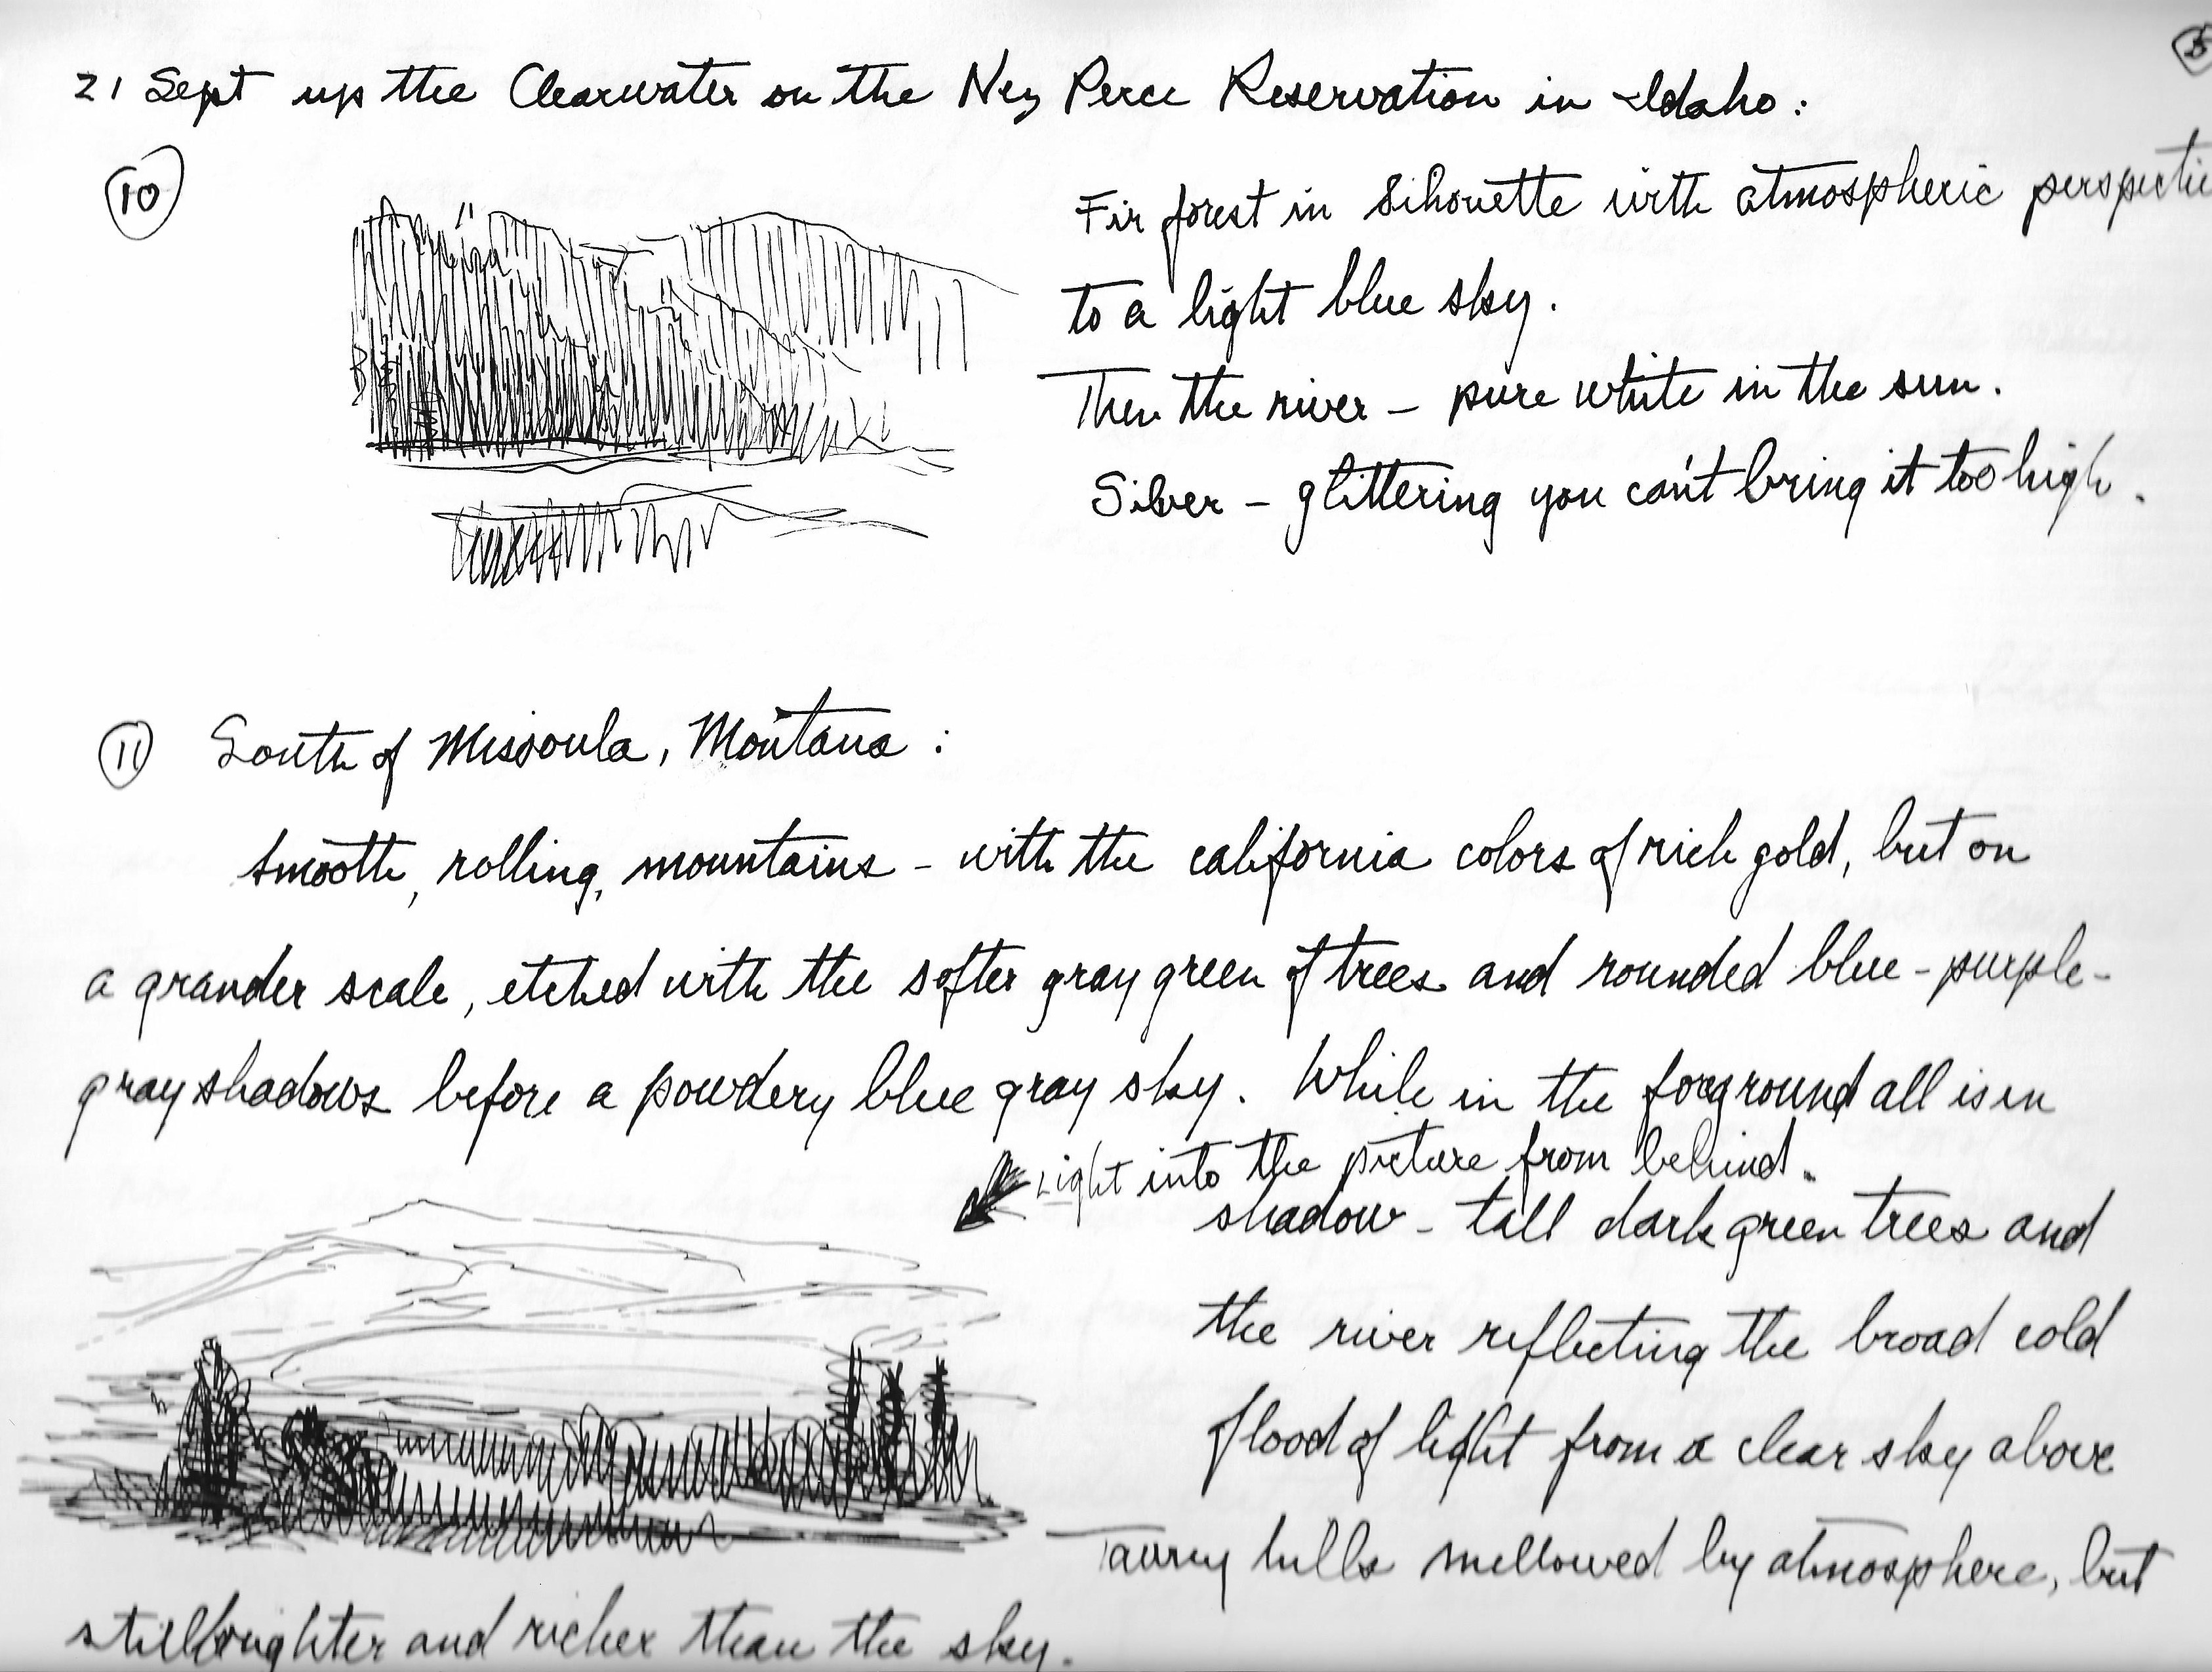 5
21 Sept up the Clearwater on the Nez Perce Reservation in Idaho:
10
Fir forest in Sihouette with atmospheric perspective
to a light blue sky.
Then the river – pure white in the sun.
Silver – glittering you can't bring it too high.
11 South of Missoula, Montana:
smooth, rolling, mountains – with the california colors of rich gold, but on
a grander scale, etched with the softer gray green of trees and rounded blue-purple-
gray shadows before a powdery blue gray sky. While in the foreground all is in
Light into the picture from behind.
shadow – tall dark green trees and
the river reflecting the broad cold
flood of light from a clear sky above
Tawny hills mellowed by atmosphere, but
still brighter and richer than the sky.